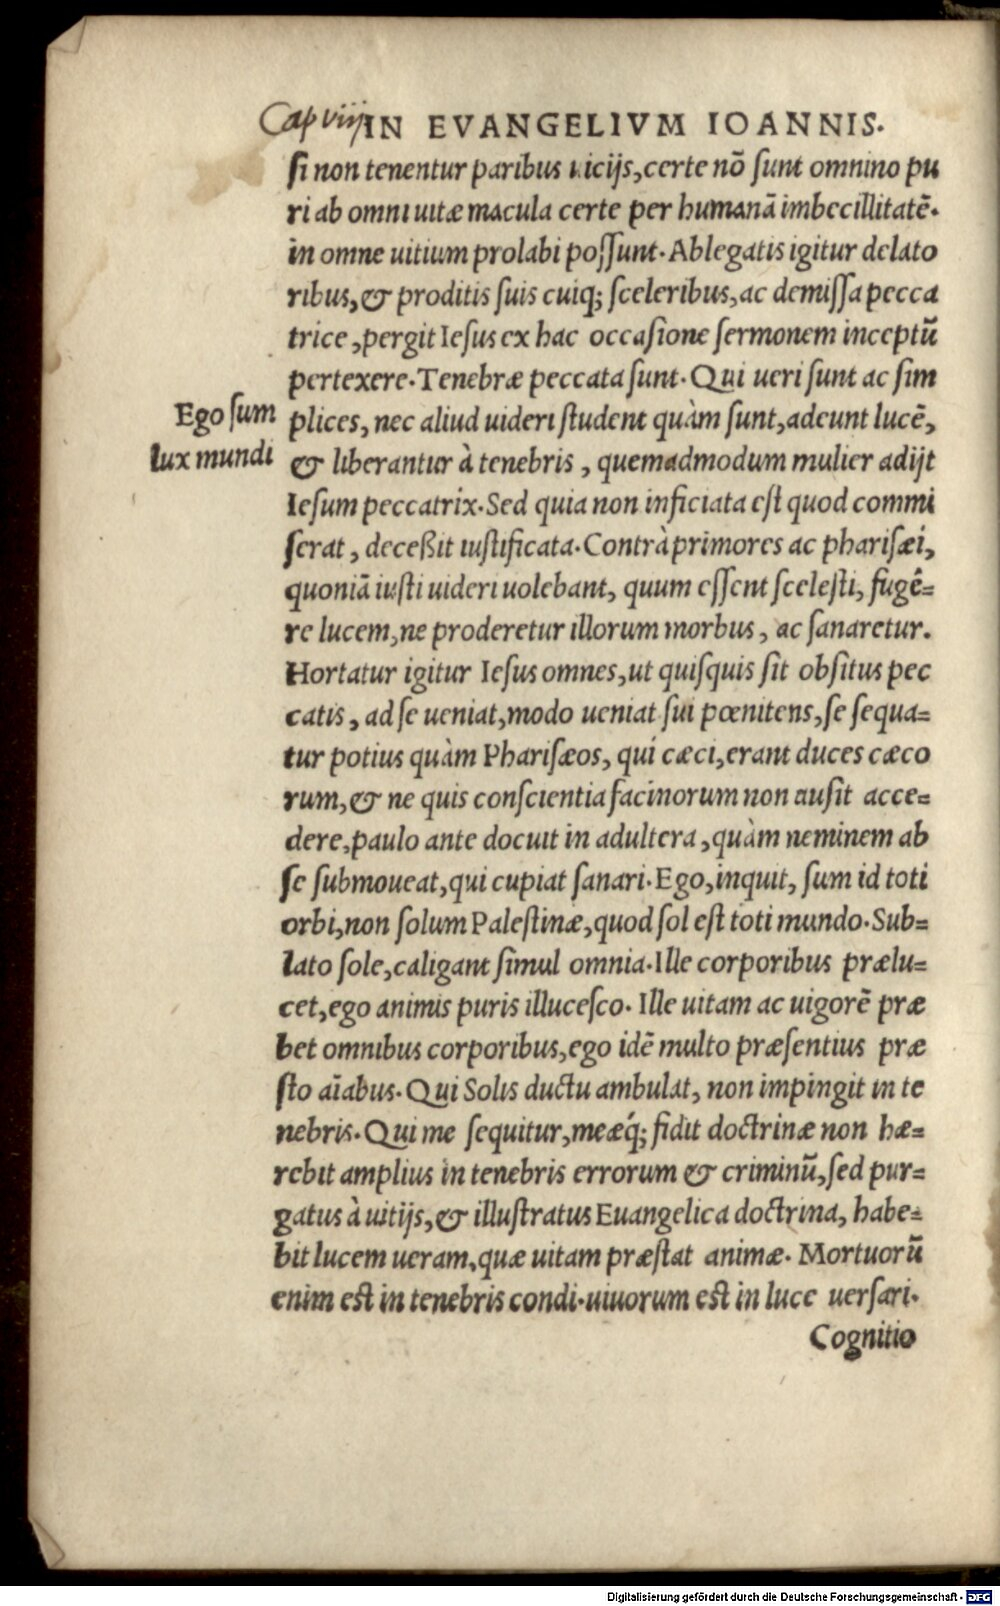 Cap viij IN EVANGELIVM IOANNIS.
si non tenentur paribus uicijs, certe nō sunt omnino pu
ri ab omni uitæ macula certe per humanā imbecillitatē.
in omne uitium prolabi possunt. Ablegatis igitur delato
ribus, & proditis suis cuiq; sceleribus, ac demissa pecca
trice, pergit Iesus ex hac occasione sermonem inceptū
pertexere. Tenebræ peccata sunt. Qui ueri sunt ac sim
Ego sum
lux mundi
plices, nec aliud uideri student quàm sunt, adeunt lucē,
& liberantur à tenebris, quemadmodum mulier adijt
Iesum peccatrix. Sed quia non inficiata est quod commi
serat, deceßit iustificata. Contrà primores ac pharisæi,
quoniā iusti uideri uolebant, quum essent scelesti, fugê=
re lucem, ne proderetur illorum morbus, ac sanaretur.
Hortatur igitur Iesus omnes, ut quisquis sit obsitus pec
catis, ad se ueniat, modo ueniat sui pœnitens, se sequa=
tur potius quàm Pharisæos, qui cæci, erant duces cæco
rum, & ne quis conscientia facinorum non ausit acce=
dere, paulo ante docuit in adultera, quàm neminem ab
se submoueat, qui cupiat sanari. Ego, inquit, sum id toti
orbi, non solum Palestinæ, quod sol est toti mundo. Sub=
lato sole, caligant simul omnia. Ille corporibus prælu=
cet, ego animis puris illucesco. Ille uitam ac uigorē præ
bet omnibus corporibus, ego idē multo præsentius præ
sto aīabus. Qui Solis ductu ambulat, non impingit in te
nebris. Qui me sequitur, meæq́; fidit doctrinæ non hæ=
rebit amplius in tenebris errorum & criminū, sed pur=
gatus à uitijs, & illustratus Euangelica doctrina, habe=
bit lucem ueram, quæ uitam præstat animæ. Mortuorū
enim est in tenebris condi. uiuorum est in luce uersari.
Cognitio
Digitalisierung gefördert durch die Deutsche Forschungsgemeinschaft - DFG